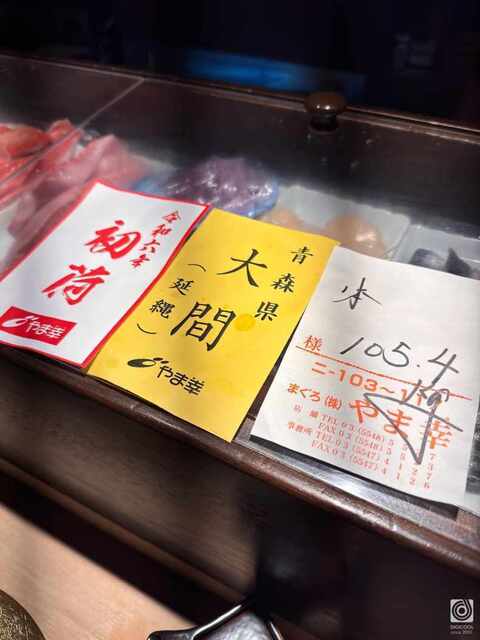 令和六年
初荷
やま幸
青森県
大間
(延縄)
やま幸
様
105.4
ニ-103~1
まぐろ(株)やま幸
店舗 TEL 03 (5548)
FAX 03 (5548)
事務所 TEL 03 (5547)
FAX 03 (5547)
DIGICOOL